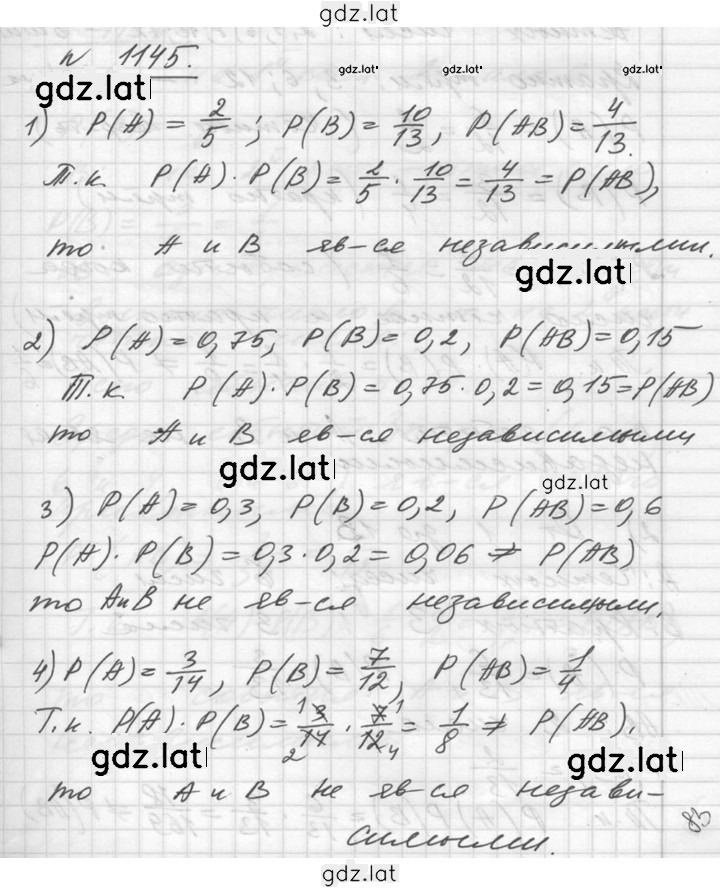 gdz.lat
N 1145.
gdz.lat gdz.lat gdz.lat
1) P(A) = 2/5; P(B) = 10/13, P(AB) = 4/13.
Т.к. P(A) · P(B) = 2/5 · 10/13 = 4/13 = P(AB),
то A и B яв-ся независимыми.
gdz.lat
2) P(A) = 0,75, P(B) = 0,2, P(AB) = 0,15
Т.к. P(A) · P(B) = 0,75 · 0,2 = 0,15 = P(AB)
то A и B яв-ся независимыми
gdz.lat gdz.lat
3) P(A) = 0,3, P(B) = 0,2, P(AB) = 0,6
P(A) · P(B) = 0,3 · 0,2 = 0,06 ≠ P(AB)
то A и B не яв-ся независимыми.
4) P(A) = 3/14, P(B) = 7/12, P(AB) = 1/4
Т.к. P(A) · P(B) = 3/14 · 7/12 = 1/8 ≠ P(AB).
gdz.lat gdz.lat
то A и B не яв-ся незави-
симыми.
83
gdz.lat